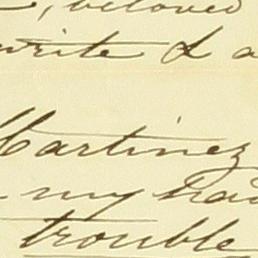 , beloved
write & a
Martinez
my had
trouble